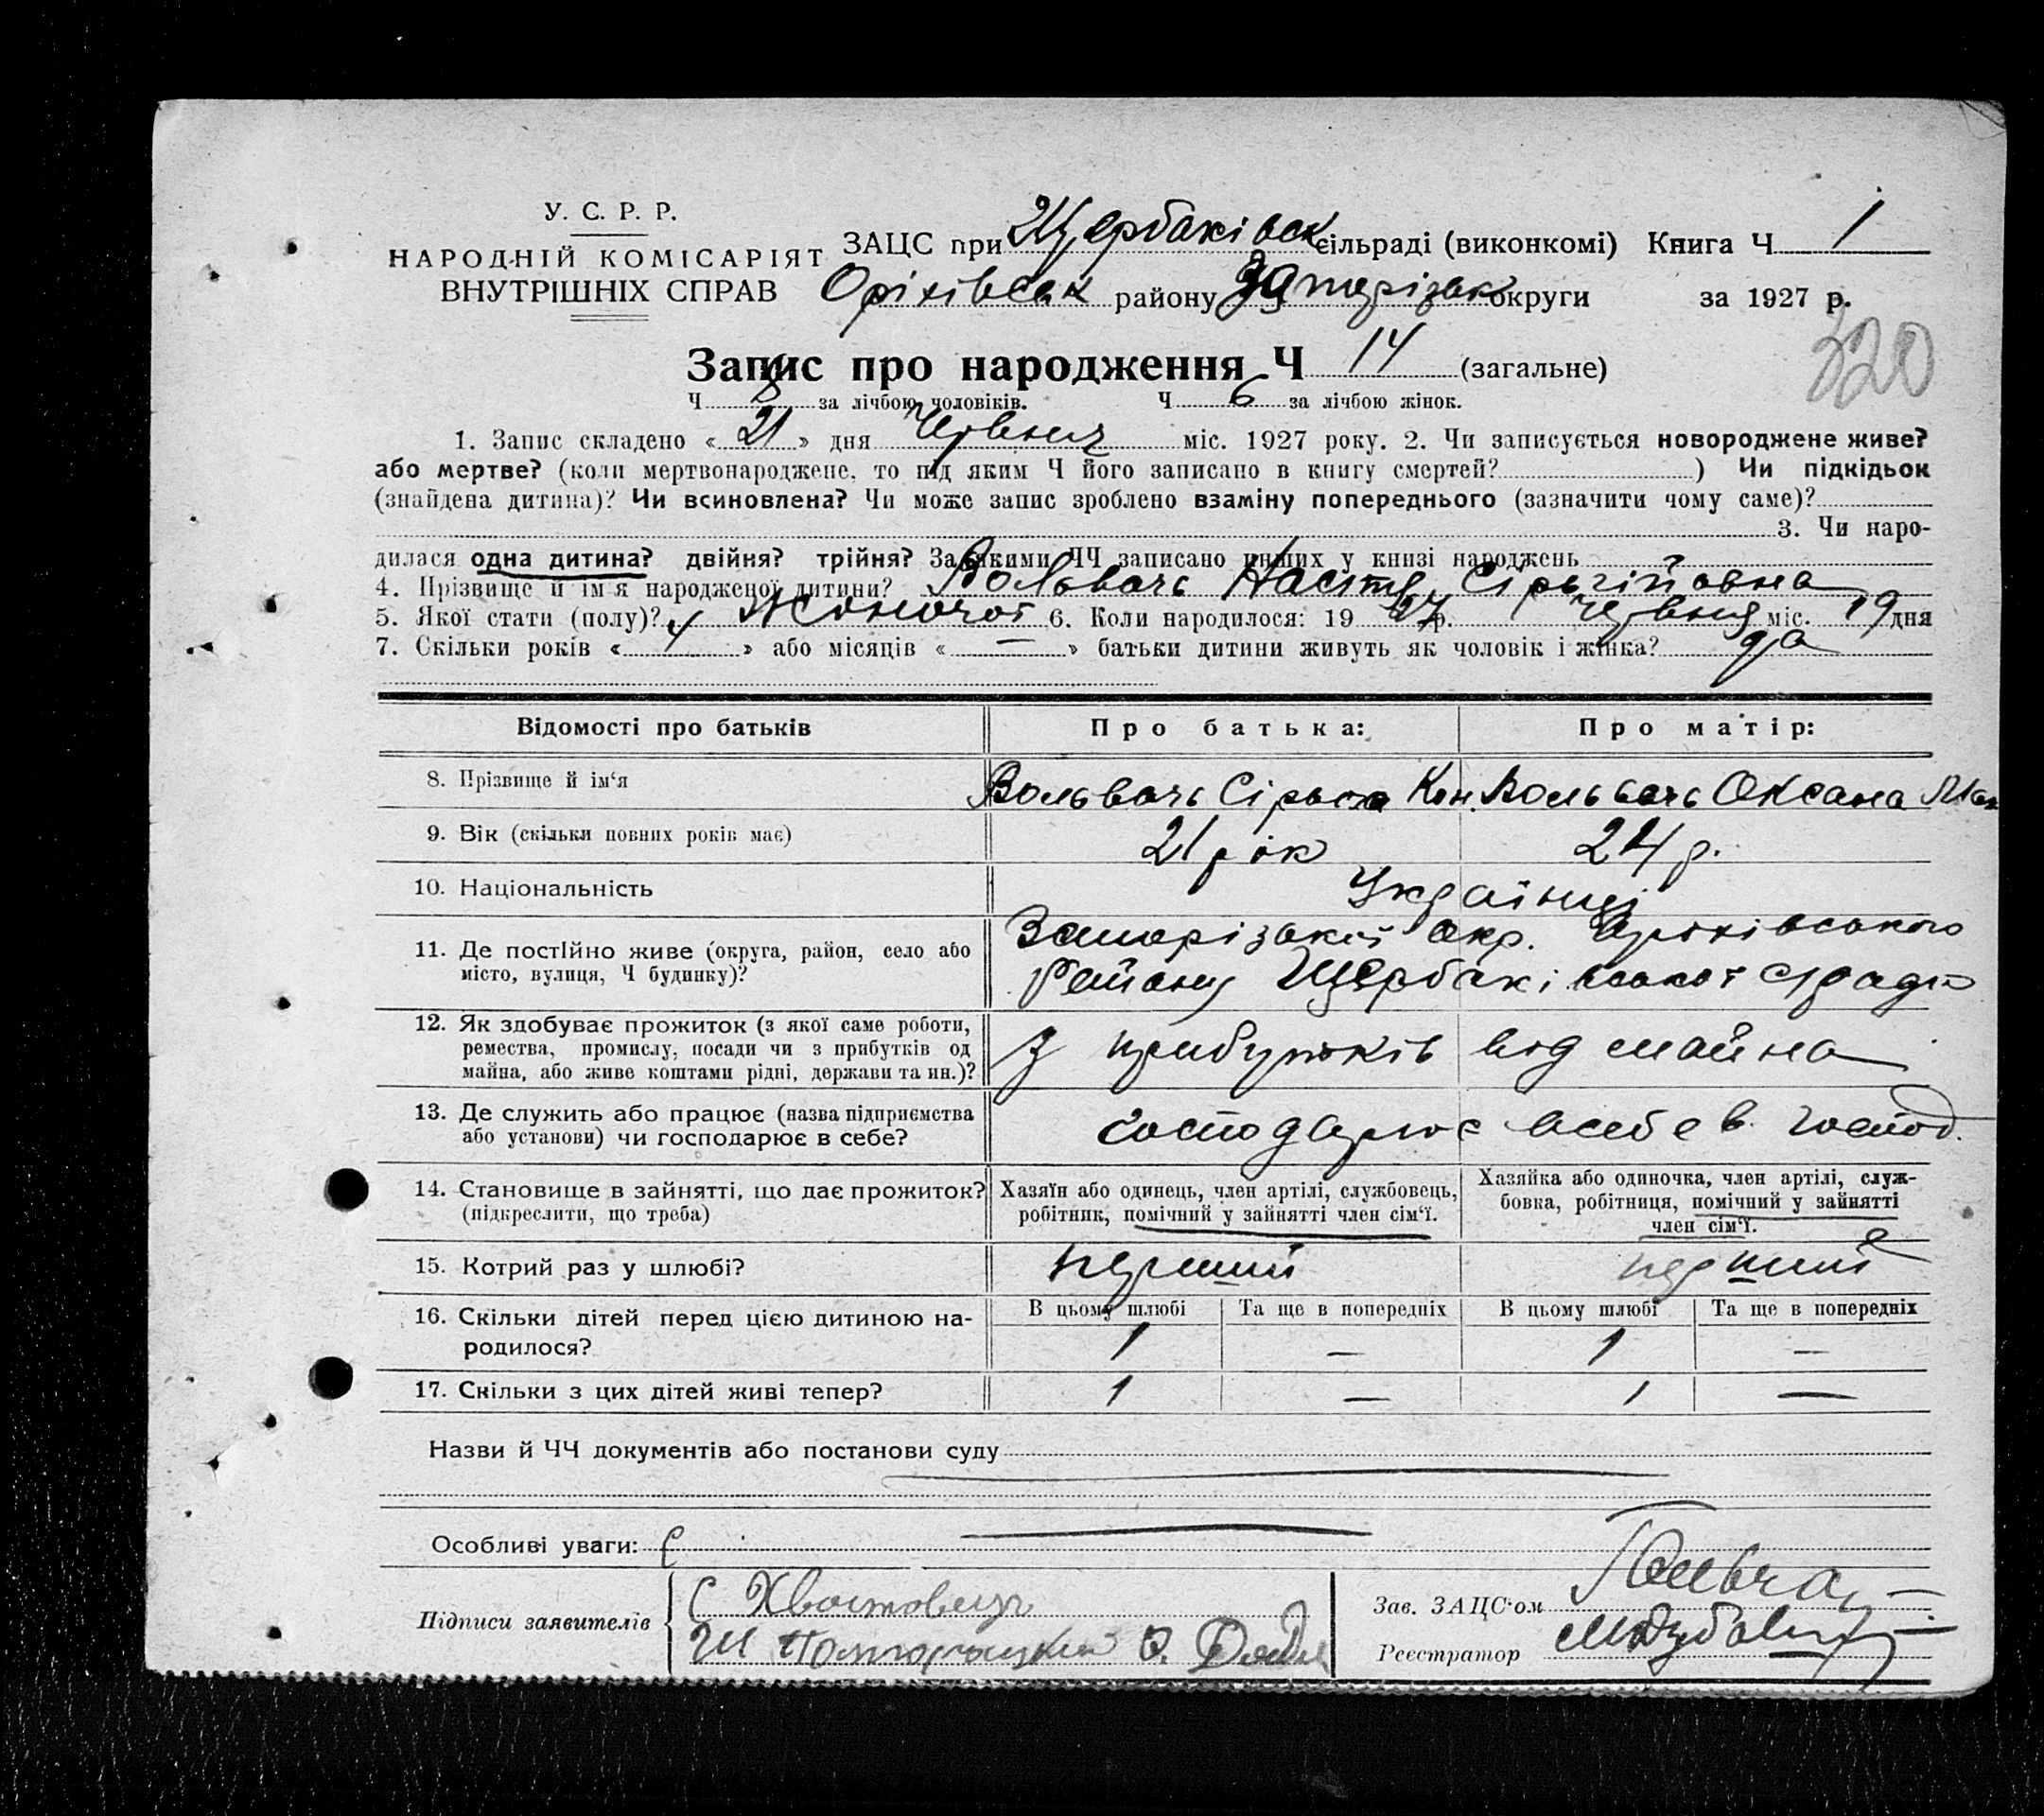 У. С. Р. Р.
НАРОДНІЙ КОМІСАРІЯТ
ВНУТРІШНІХ СПРАВ
ЗАЦС при Щербаківск сільраді (виконкомі) Книга Ч 1
Оріхівськ району Запорізьк округи за 1927 р.
320
Запис про народження Ч 14 (загальне)
Ч 8 за лічбою чоловіків. Ч 6 за лічбою жінок.
1. Запис складено « 21 » дня Червня міс. 1927 року. 2. Чи записується новороджене живе?
або мертве? (коли мертвонароджене, то під яким Ч його записано в книгу смертей? ) Чи підкідьок
(знайдена дитина)? Чи всиновлена? Чи може запис зроблено взаміну попереднього (зазначити чому саме)?
3. Чи наро-
дилася одна дитина? двійня? трійня? За якими ЧЧ записано инших у книзі народжень
4. Прізвище й ім'я народженої дитини? Вольвачь Настя Сірьгійовна
5. Якої стати (полу)? Жоночої 6. Коли народилося: 19 27 р. Червня міс. 19 дня
7. Скільки років « 4 » або місяців « — » батьки дитини живуть як чоловік і жінка? да
Відомості про батьків Про батька: Про матір:
8. Прізвище й ім'я Вольвачь Кон. Вольвачь Оксана
9. Вік (скільки повних років має) 21 рік 24 р.
10. Національність Українці
11. Де постІйно живе (округа, район, село або Запорізької окр. Оріхівського
місто, вулиця, Ч будинку)? Району Щербаківської
12. Як здобуває прожиток (з якої саме роботи,
ремества, промислу, посади чи з прибутків од з прибутків від майна
майна, або живе коштами рідні, держави та ин.)?
13. Де служить або працює (назва підприємства господарює в себе в госпОд.
або установи) чи господарює в себе?
14. Становище в зайнятті, що дає прожиток?
(підкреслити, що треба)
Хазяїн або одинець, член артілі, службовець,
робітник, помічний у зайнятті член сім'ї.
Хазяйка або одиночка, член артілі, служ-
бовка, робітниця, помічний у зайнятті
член сім'ї.
15. Котрий раз у шлюбі? перший перший
16. Скільки дітей перед цією дитиною на-
родилося?
В цьому шлюбі Та ще в попередніх В цьому шлюбі Та ще в попередніх
1 — 1 —
17. Скільки з цих дітей живі тепер? 1 — 1 —
Назви й ЧЧ документів або постанови суду
Особливі уваги:
Підписи заявителів
С Хвостовець
Зав. ЗАЦС'ом
Реєстратор